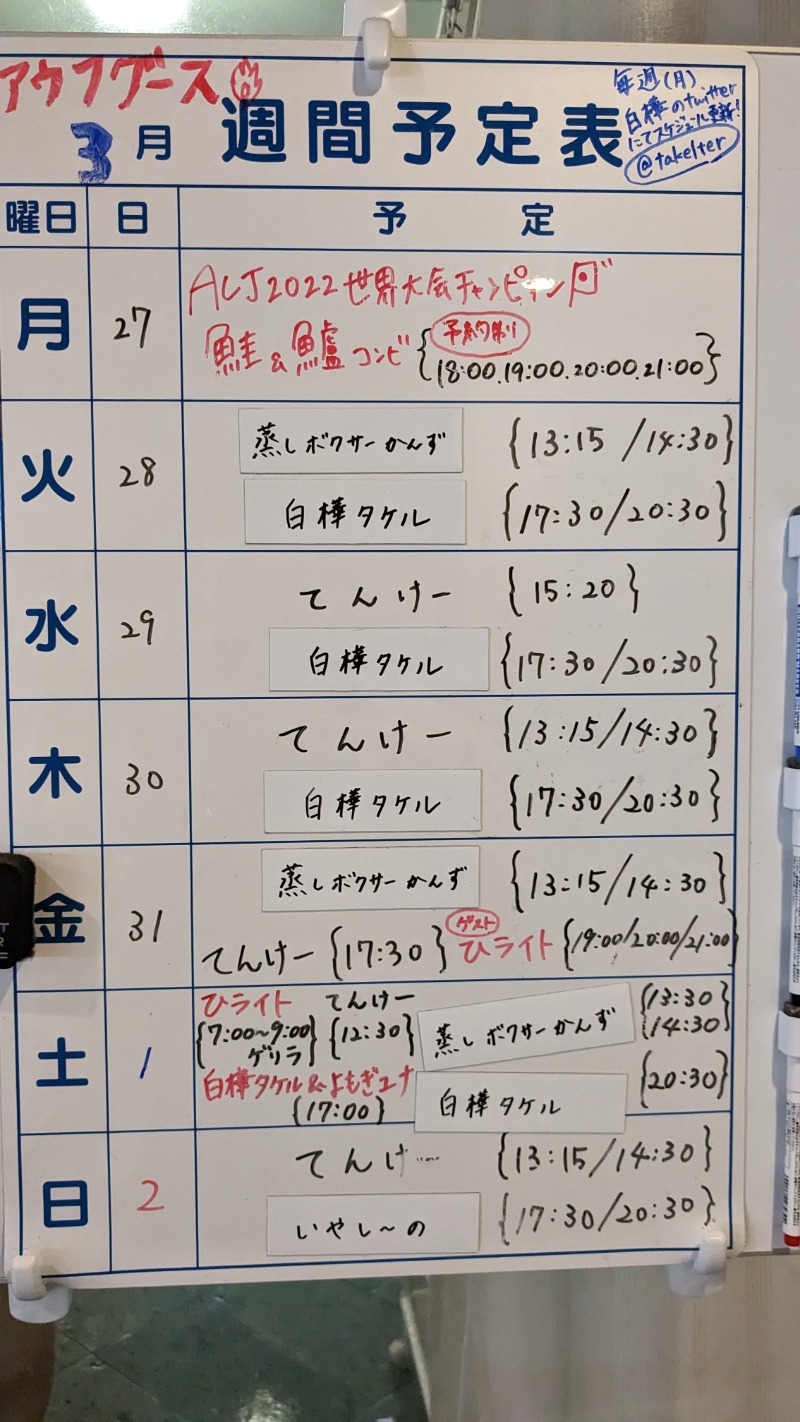 アウフグース
3月 週間予定表
毎週(月)
白樺のtwitter
にてスケジュール更新!
@takelter
曜日 日 予定
月 27 ALJ2022世界大会チャンピオン回
鮭&鱸コンビ 予約制り {18:00.19:00.20:00.21:00}
火 28 蒸しボクサーかんず {13:15/14:30}
白樺タケル {17:30/20:30}
水 29 てんけー {15:20}
白樺タケル {17:30/20:30}
木 30 てんけー {13:15/14:30}
白樺タケル {17:30/20:30}
金 31 蒸しボクサーかんず {13:15/14:30}
てんけー {17:30} ゲスト ひライト {19:00/20:00/21:00}
土 1 ひライト {7:00~9:00 ゲリラ} てんけー {12:30} 蒸しボクサーかんず {13:30 14:30}
白樺タケル&よもぎユナ {17:00} 白樺タケル {20:30}
日 2 てんけー {13:15/14:30}
いやし~の {17:30/20:30}